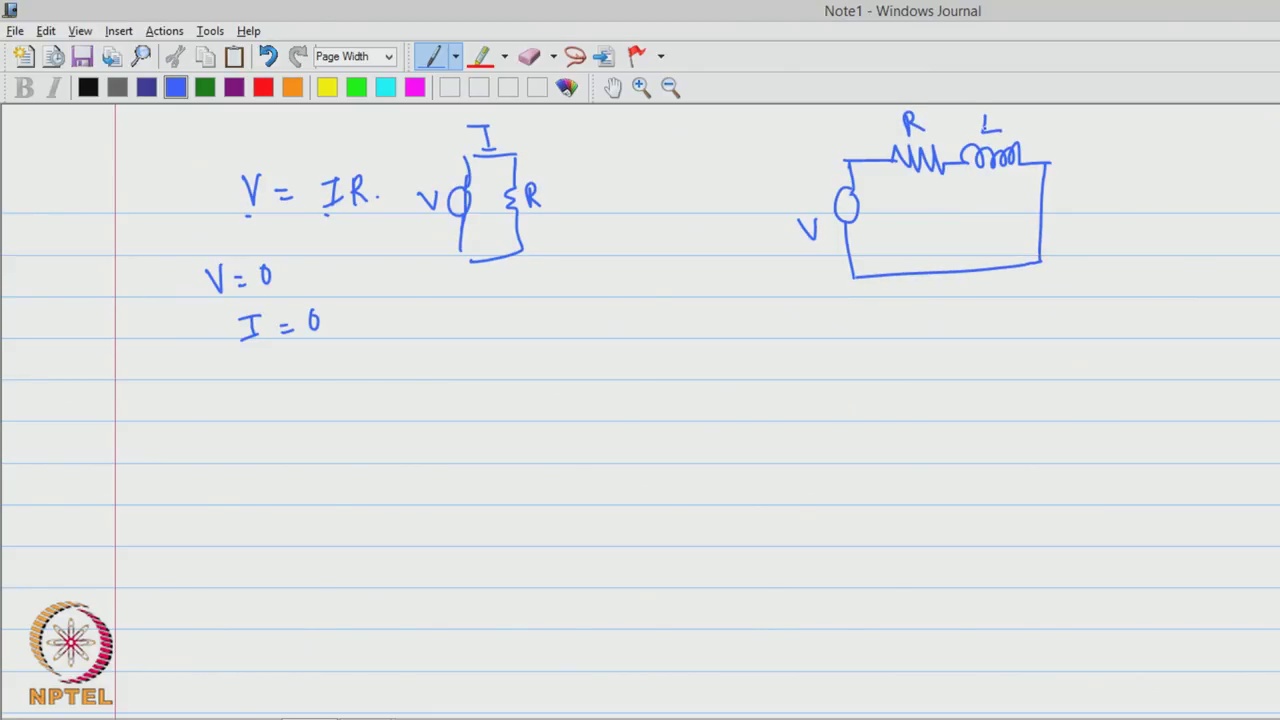 Note1 - Windows Journal
File Edit View Insert Actions Tools Help
Page Width
B I
I
R L
V = IR.
V R
V
V = 0
I = 0
NPTEL